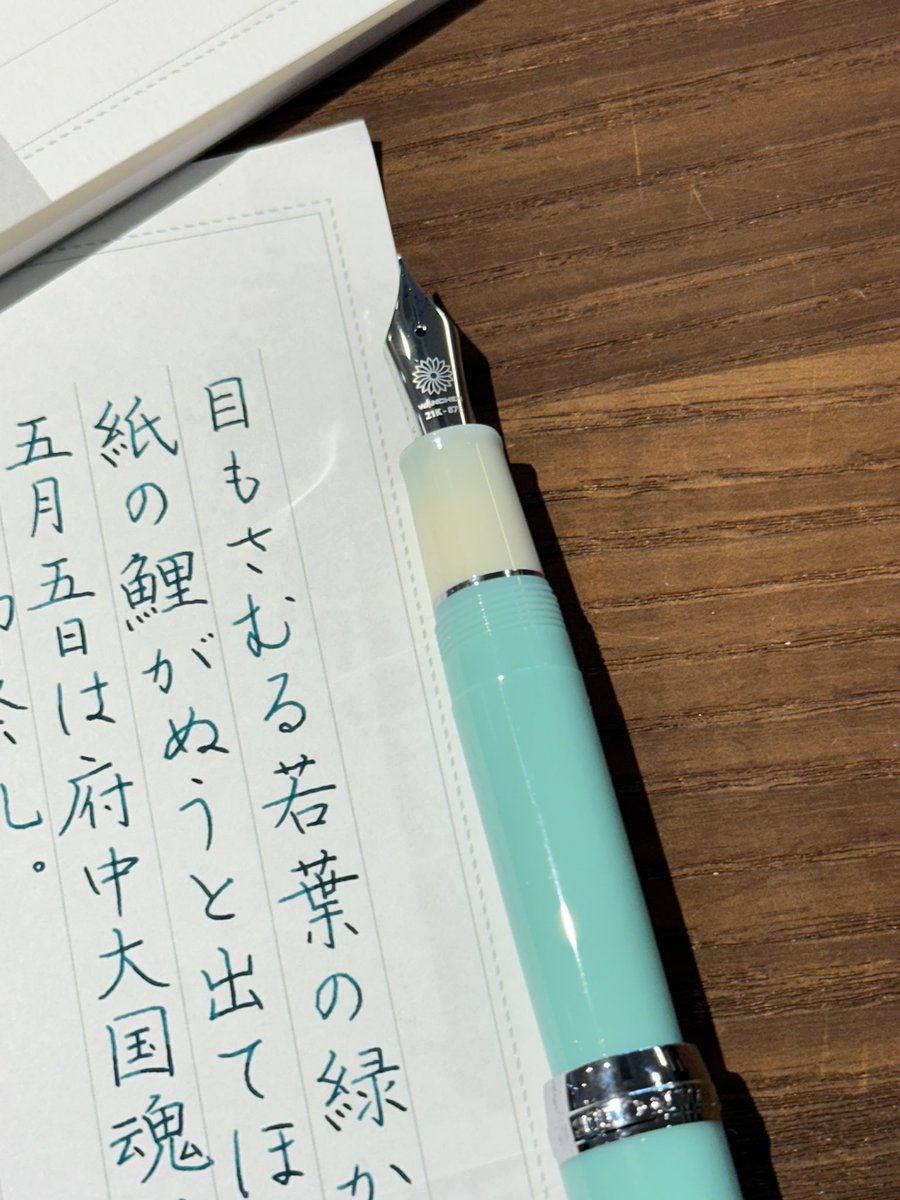 目もさむる若葉の緑か
紙の鯉がぬうと出てほ
五月五日は府中大国魂
し。
21K-87